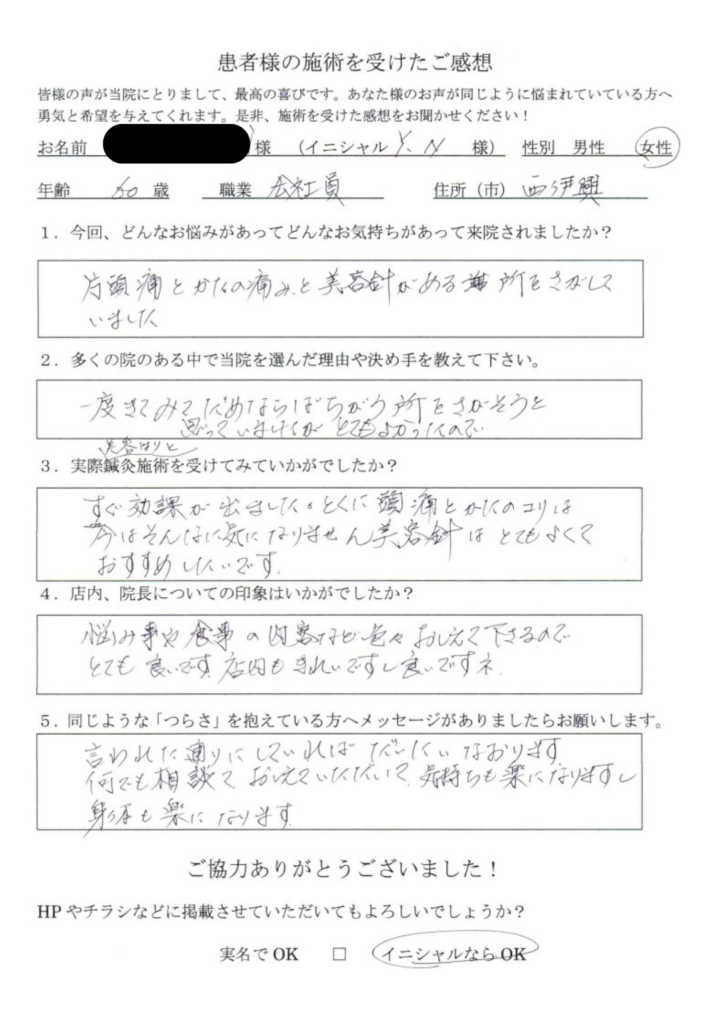 患者様の施術を受けたご感想
皆様の声が当院にとりまして、最高の喜びです。あなた様のお声が同じように悩まれていている方へ
勇気と希望を与えてくれます。是非、施術を受けた感想をお聞かせください！
お名前 様 （イニシャル Y. N 様） 性別 男性 女性
年齢 歳 職業 会社員 住所（市） 西伊興
１．今回、どんなお悩みがあってどんなお気持ちがあって来院されましたか？
片頭痛とかたの痛みと美容針がある 所をさがして
いました
２．多くの院のある中で当院を選んだ理由や決め手を教えて下さい。
一度きてみてだめならばちがう所をさがそうと
思っていましたが とてもよかったので
美容はりと
３．実際鍼灸施術を受けてみていかがでしたか？
すぐ効課が出ました。とくに頭痛とかたのコリは
今はそんなに気になりません美容針はとてもよくて
おすすめしたいです。
４．店内、院長についての印象はいかがでしたか？
悩み事や食事の内容など色々おしえて下さるので
とても良いです。店内もきれいですし良いですネ。
５．同じような「つらさ」を抱えている方へメッセージがありましたらお願いします。
言われた通りにしていればだいたいなおります。
何でも相談で、おしえていただいて、気持ちも楽になりますし
身体も楽になります。
ご協力ありがとうございました！
HPやチラシなどに掲載させていただいてもよろしいでしょうか？
実名でOK □ イニシャルならOK